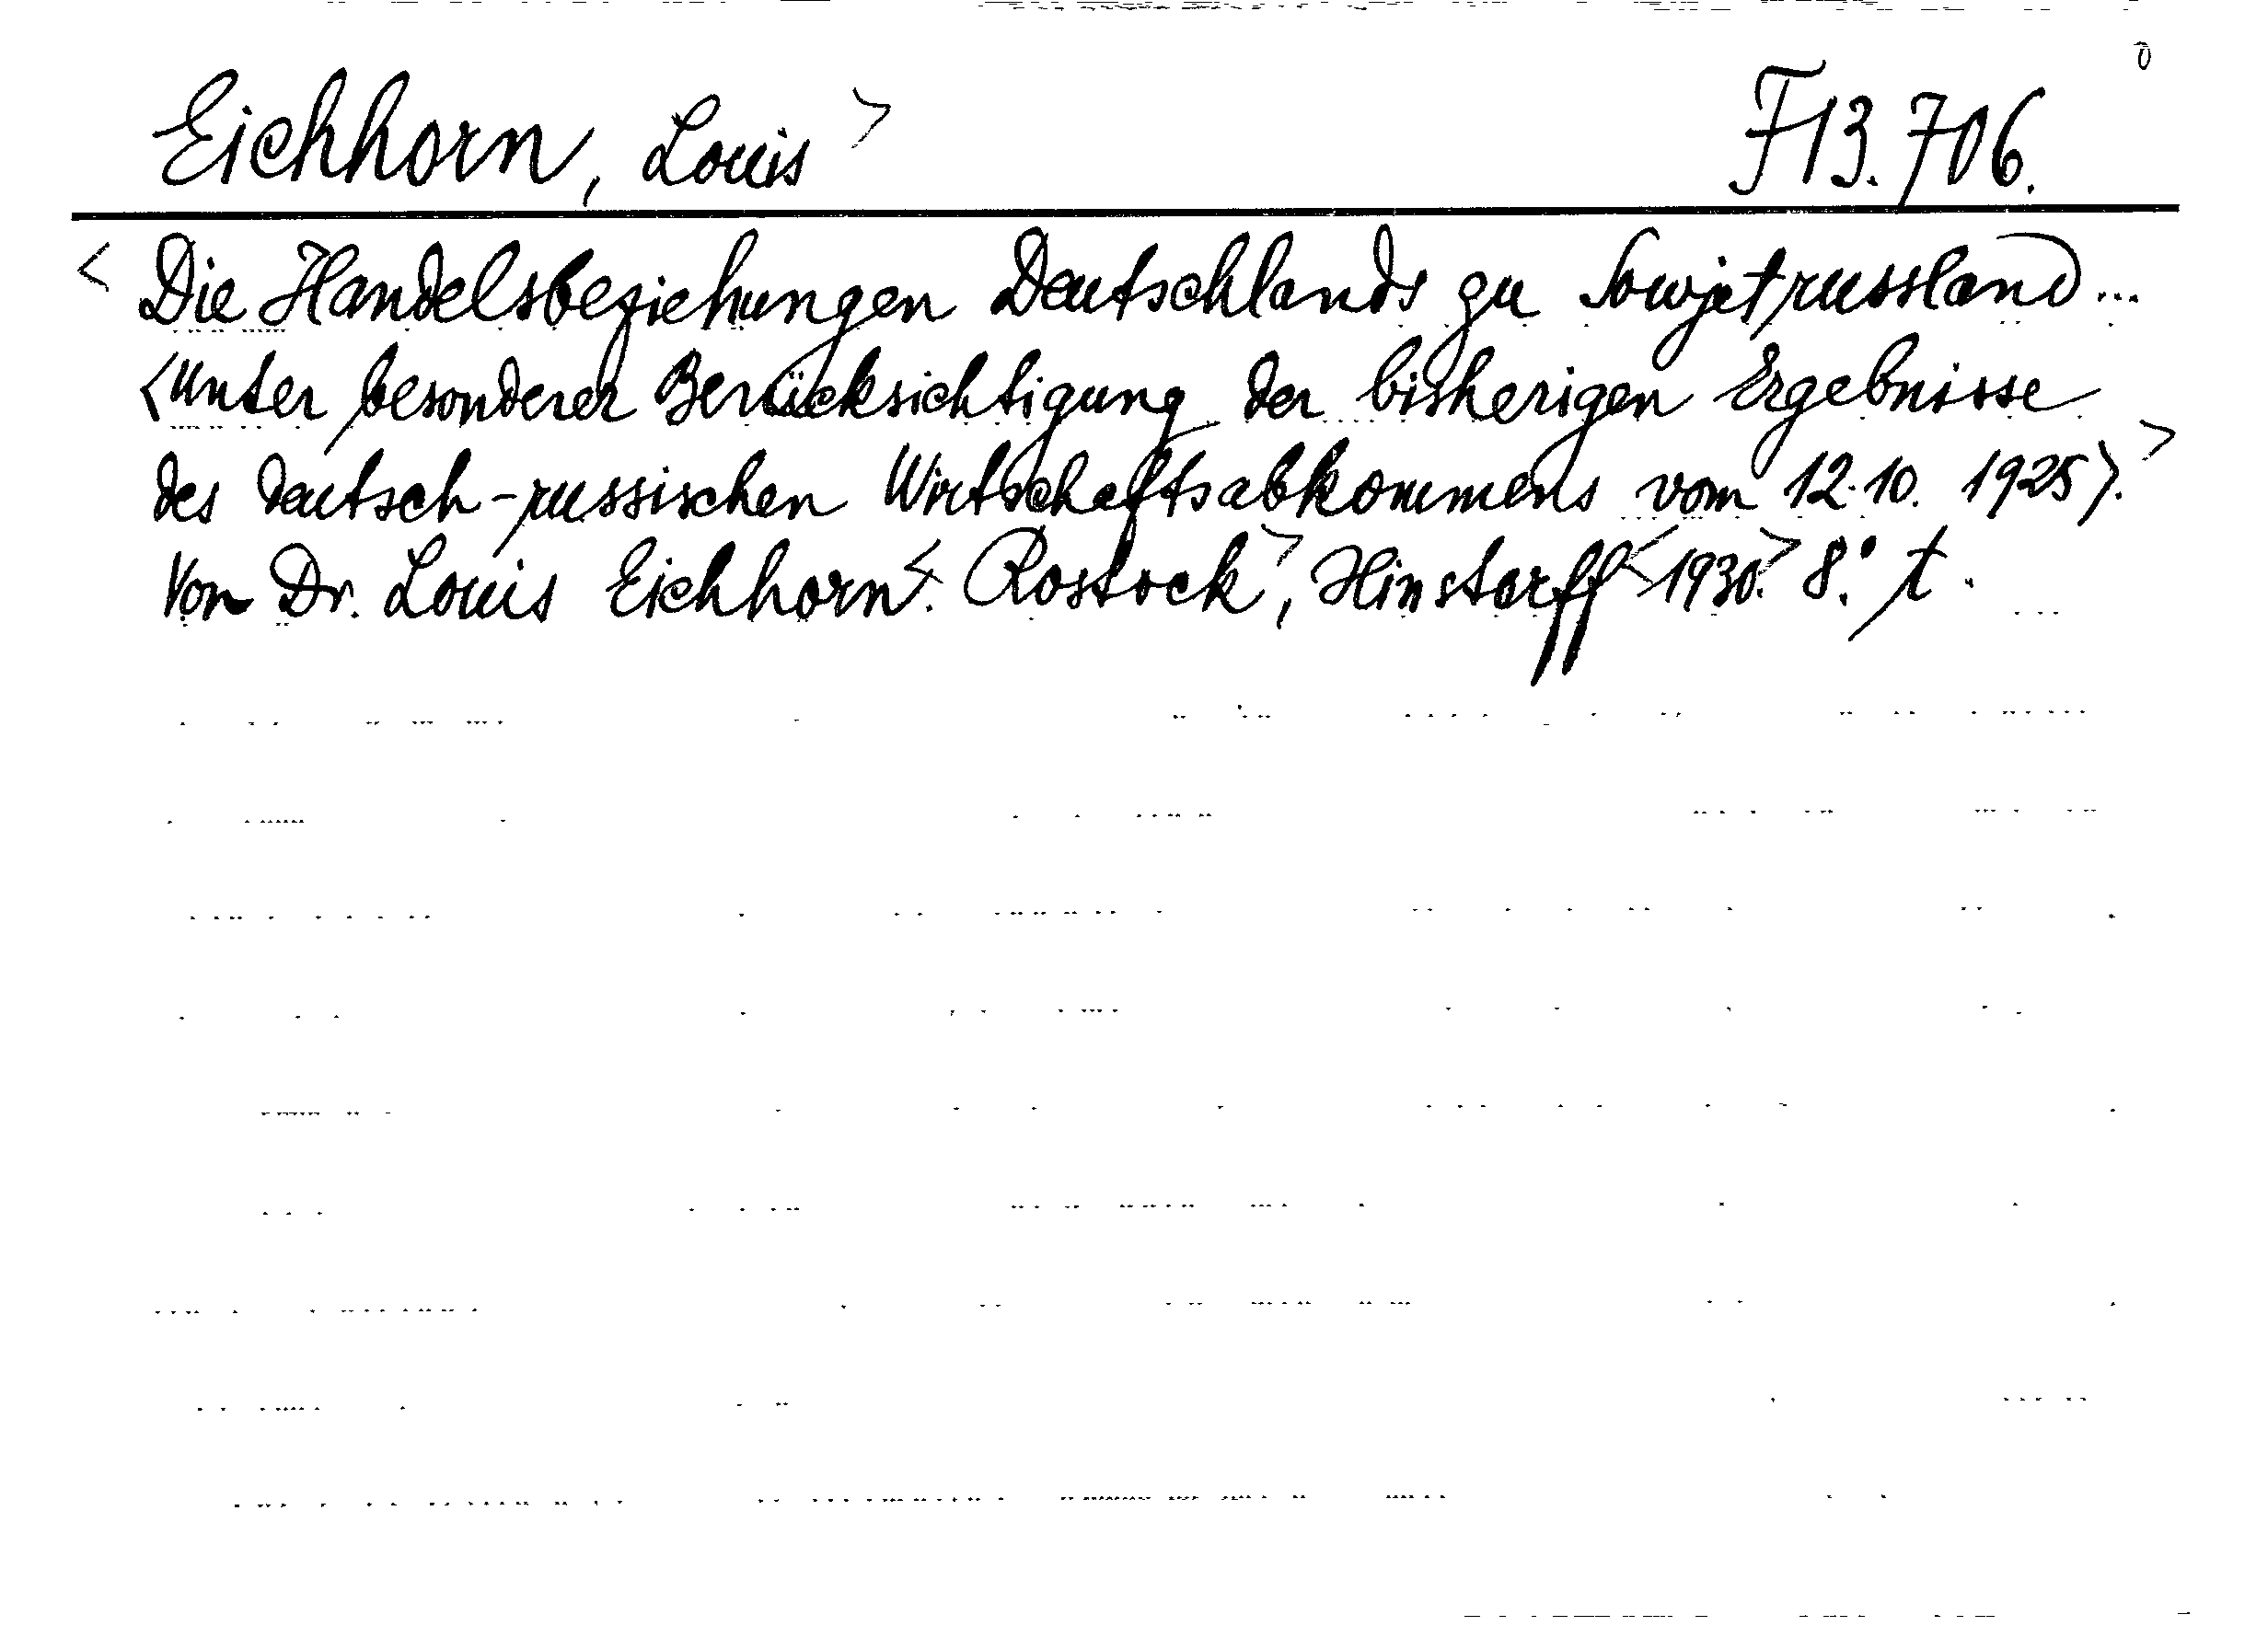 Eichhorn, Louis > F13.706.
< Die Handelsbeziehungen Deutschlands zu Sowjetrussland...
<unter besonderer Berücksichtigung der bisherigen Ergebnisse
des deutsch-russischen Wirtschaftsabkommens vom 12.10.1925>. >
Von Dr. Louis Eichhorn <. Rostock >, Hinstorff < 1930. > 8.° t.